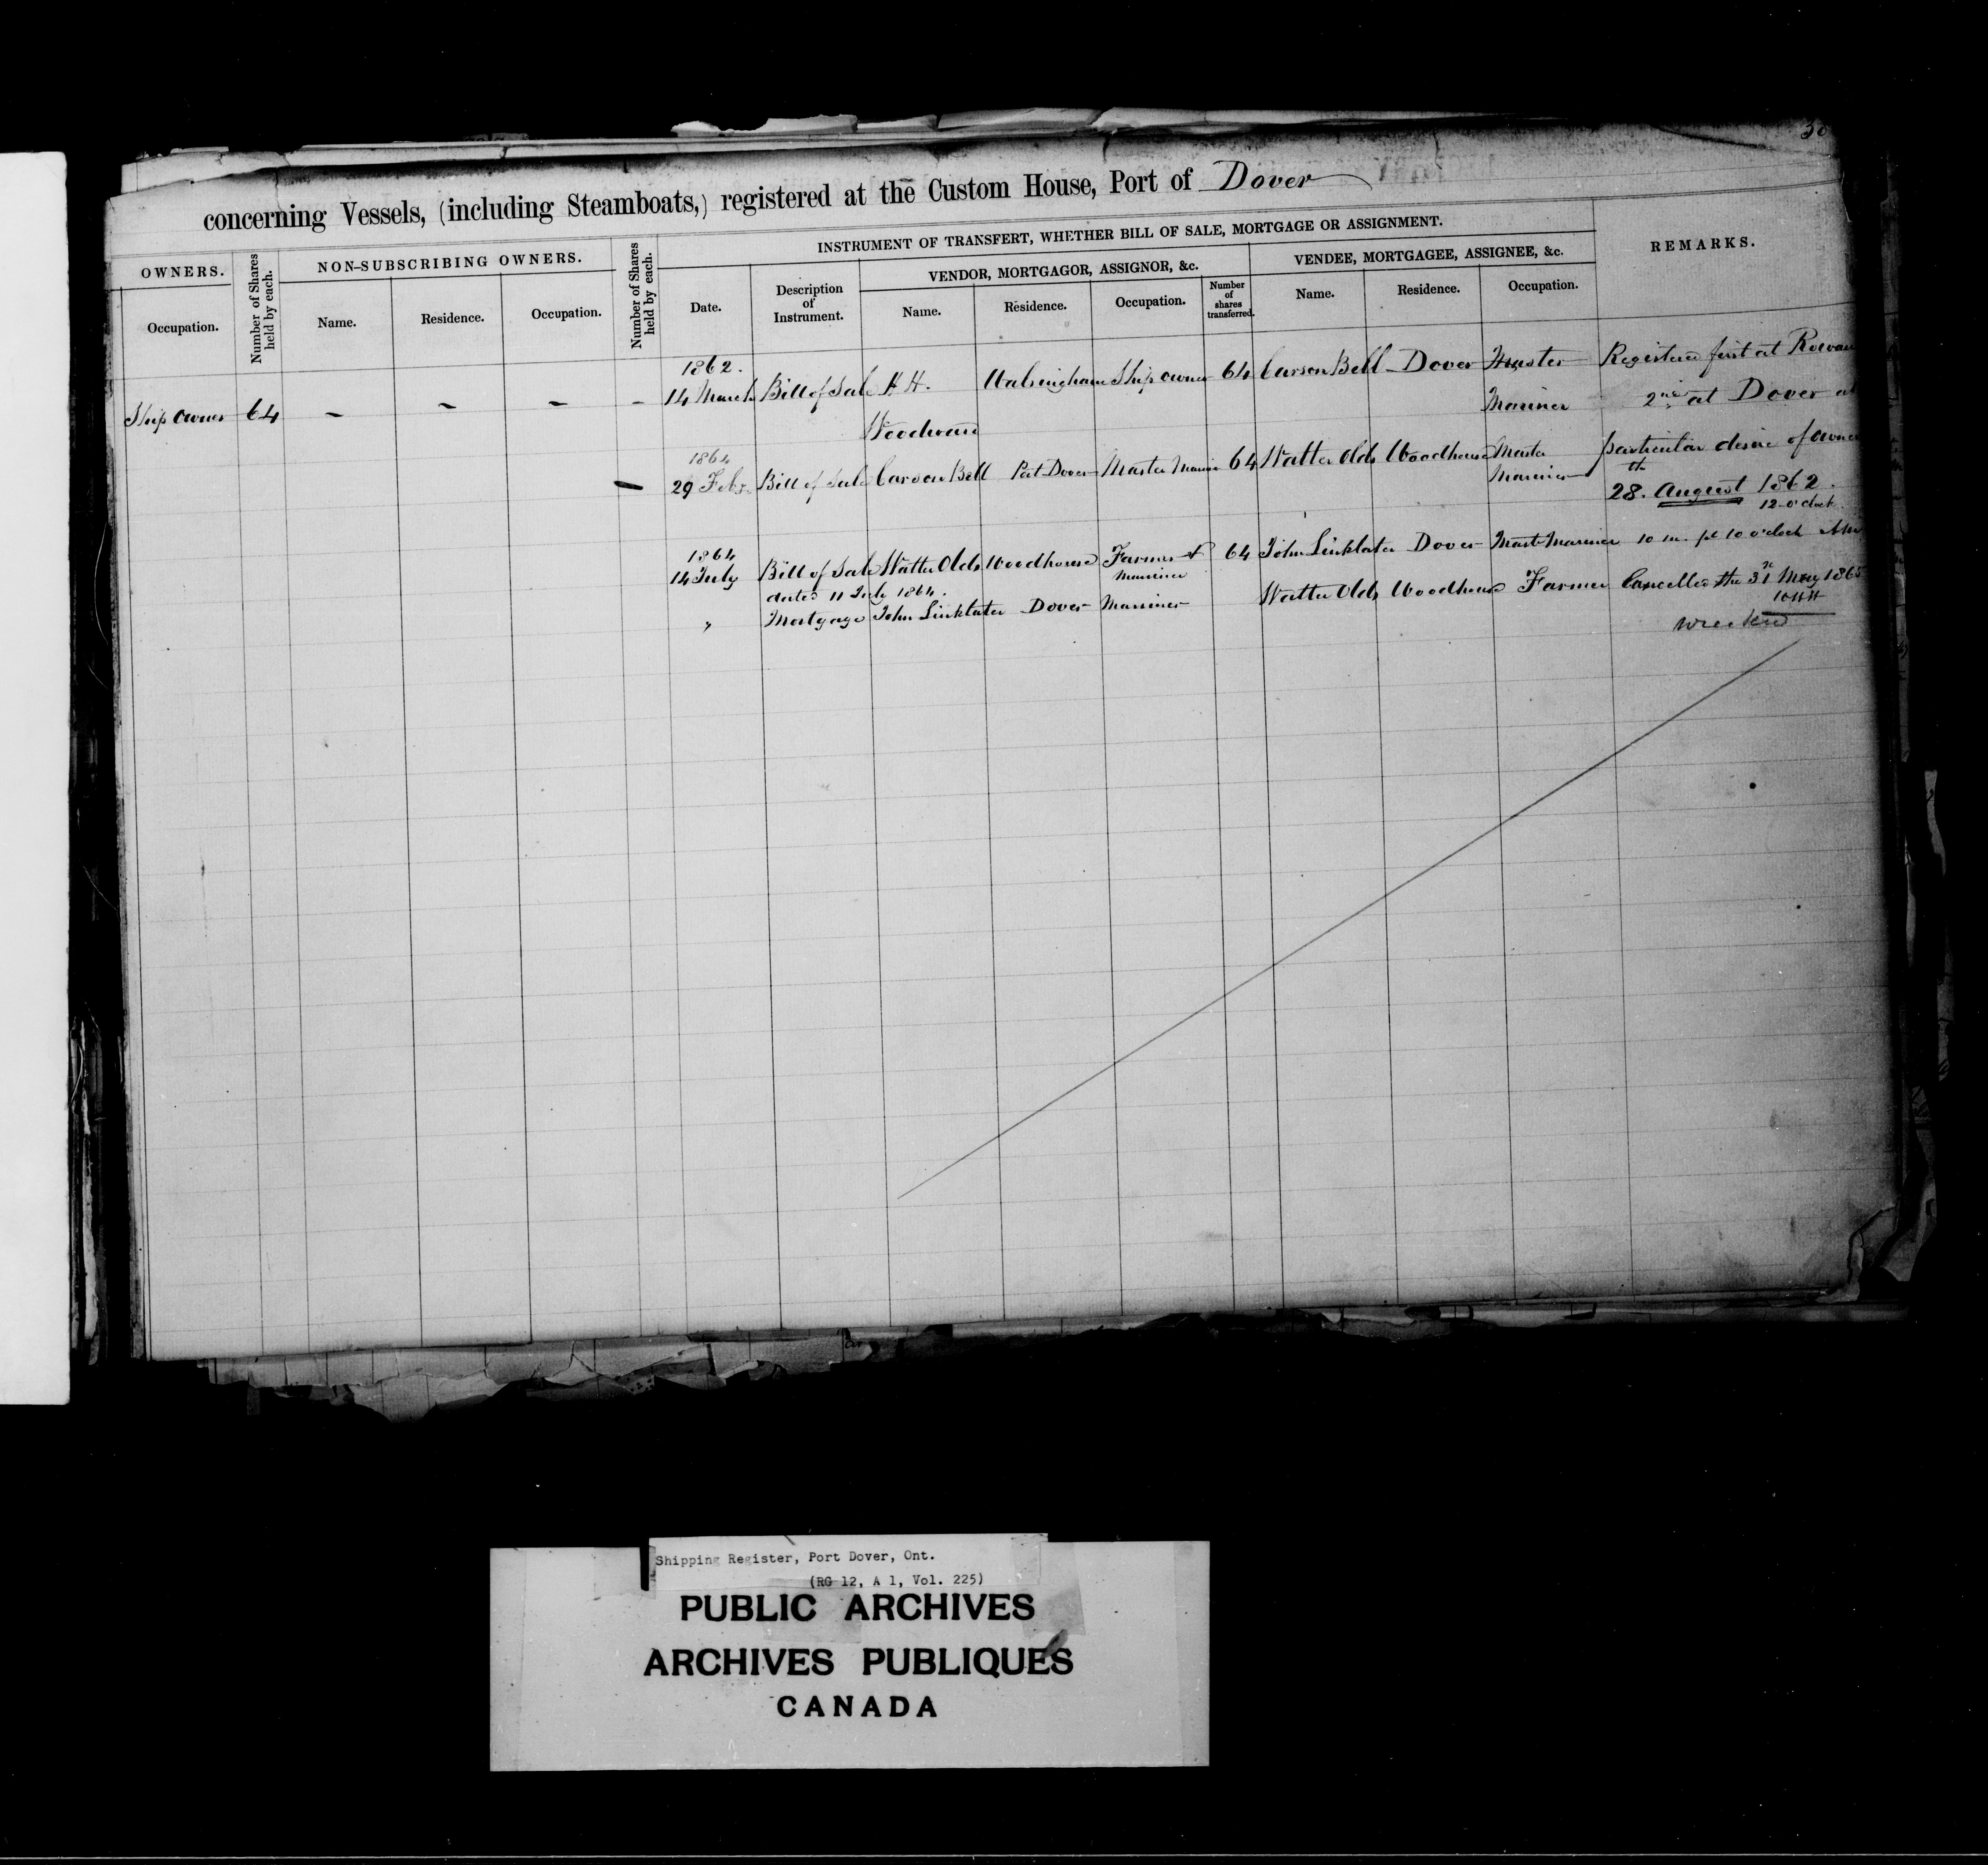 30
concerning Vessels, (including Steamboats,) registered at the Custom House, Port of Dover
OWNERS.
Number of Shares held by each.
NON-SUBSCRIBING OWNERS.
Number of Shares held by each.
INSTRUMENT OF TRANSFERT, WHETHER BILL OF SALE, MORTGAGE OR ASSIGNMENT.
REMARKS.
VENDOR, MORTGAGOR, ASSIGNOR, &c.
VENDEE, MORTGAGEE, ASSIGNEE, &c.
Occupation.
Name.
Residence.
Occupation.
Date.
Description of Instrument.
Name.
Residence.
Occupation.
Number of shares transferred.
Name.
Residence.
Occupation.
Ship owner 64 - - - -
1862.
14 March Bill of Sale H H. Walsingham Ship owner 64 Carson Bell Dover Master Registered first at Rowan
Mariner 2nd at Dover at
Woodward
1864
29 Feby. Bill of Sale Carson Bell Port Dover Master Marine 64 Walter Olds Woodhouse Master Mariner particular desire of owner
28.th August 1862.
12 o'clock
1864
14 July Bill of Sale Walter Olds Woodhouse Farmer & Mariner 64 John Linklater Dover Mast Mariner 10 m. pt 10 o'clock AM
dated 11 July 1864.
" Mortgage John Linklater Dover Mariner Walter Olds Woodhouse Farmer Cancelled the 31st May 1865
wrecked
Shipping Register, Port Dover, Ont.
(RG 12, A 1, Vol. 225)
PUBLIC ARCHIVES
ARCHIVES PUBLIQUES
CANADA